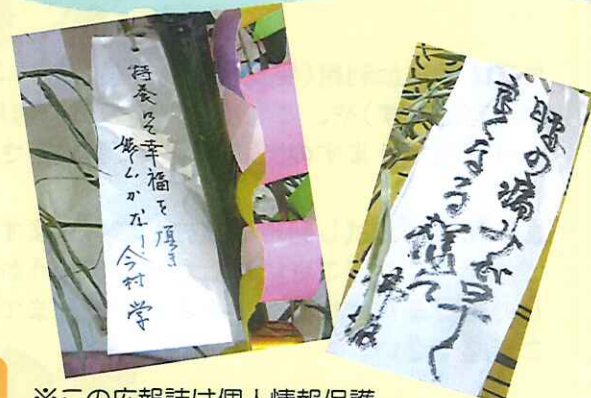 特養にて幸福を頂き
嬉しいかな!
今村 学
腰の痛みが早く
良くなる様
※この広報誌は個人情報保護